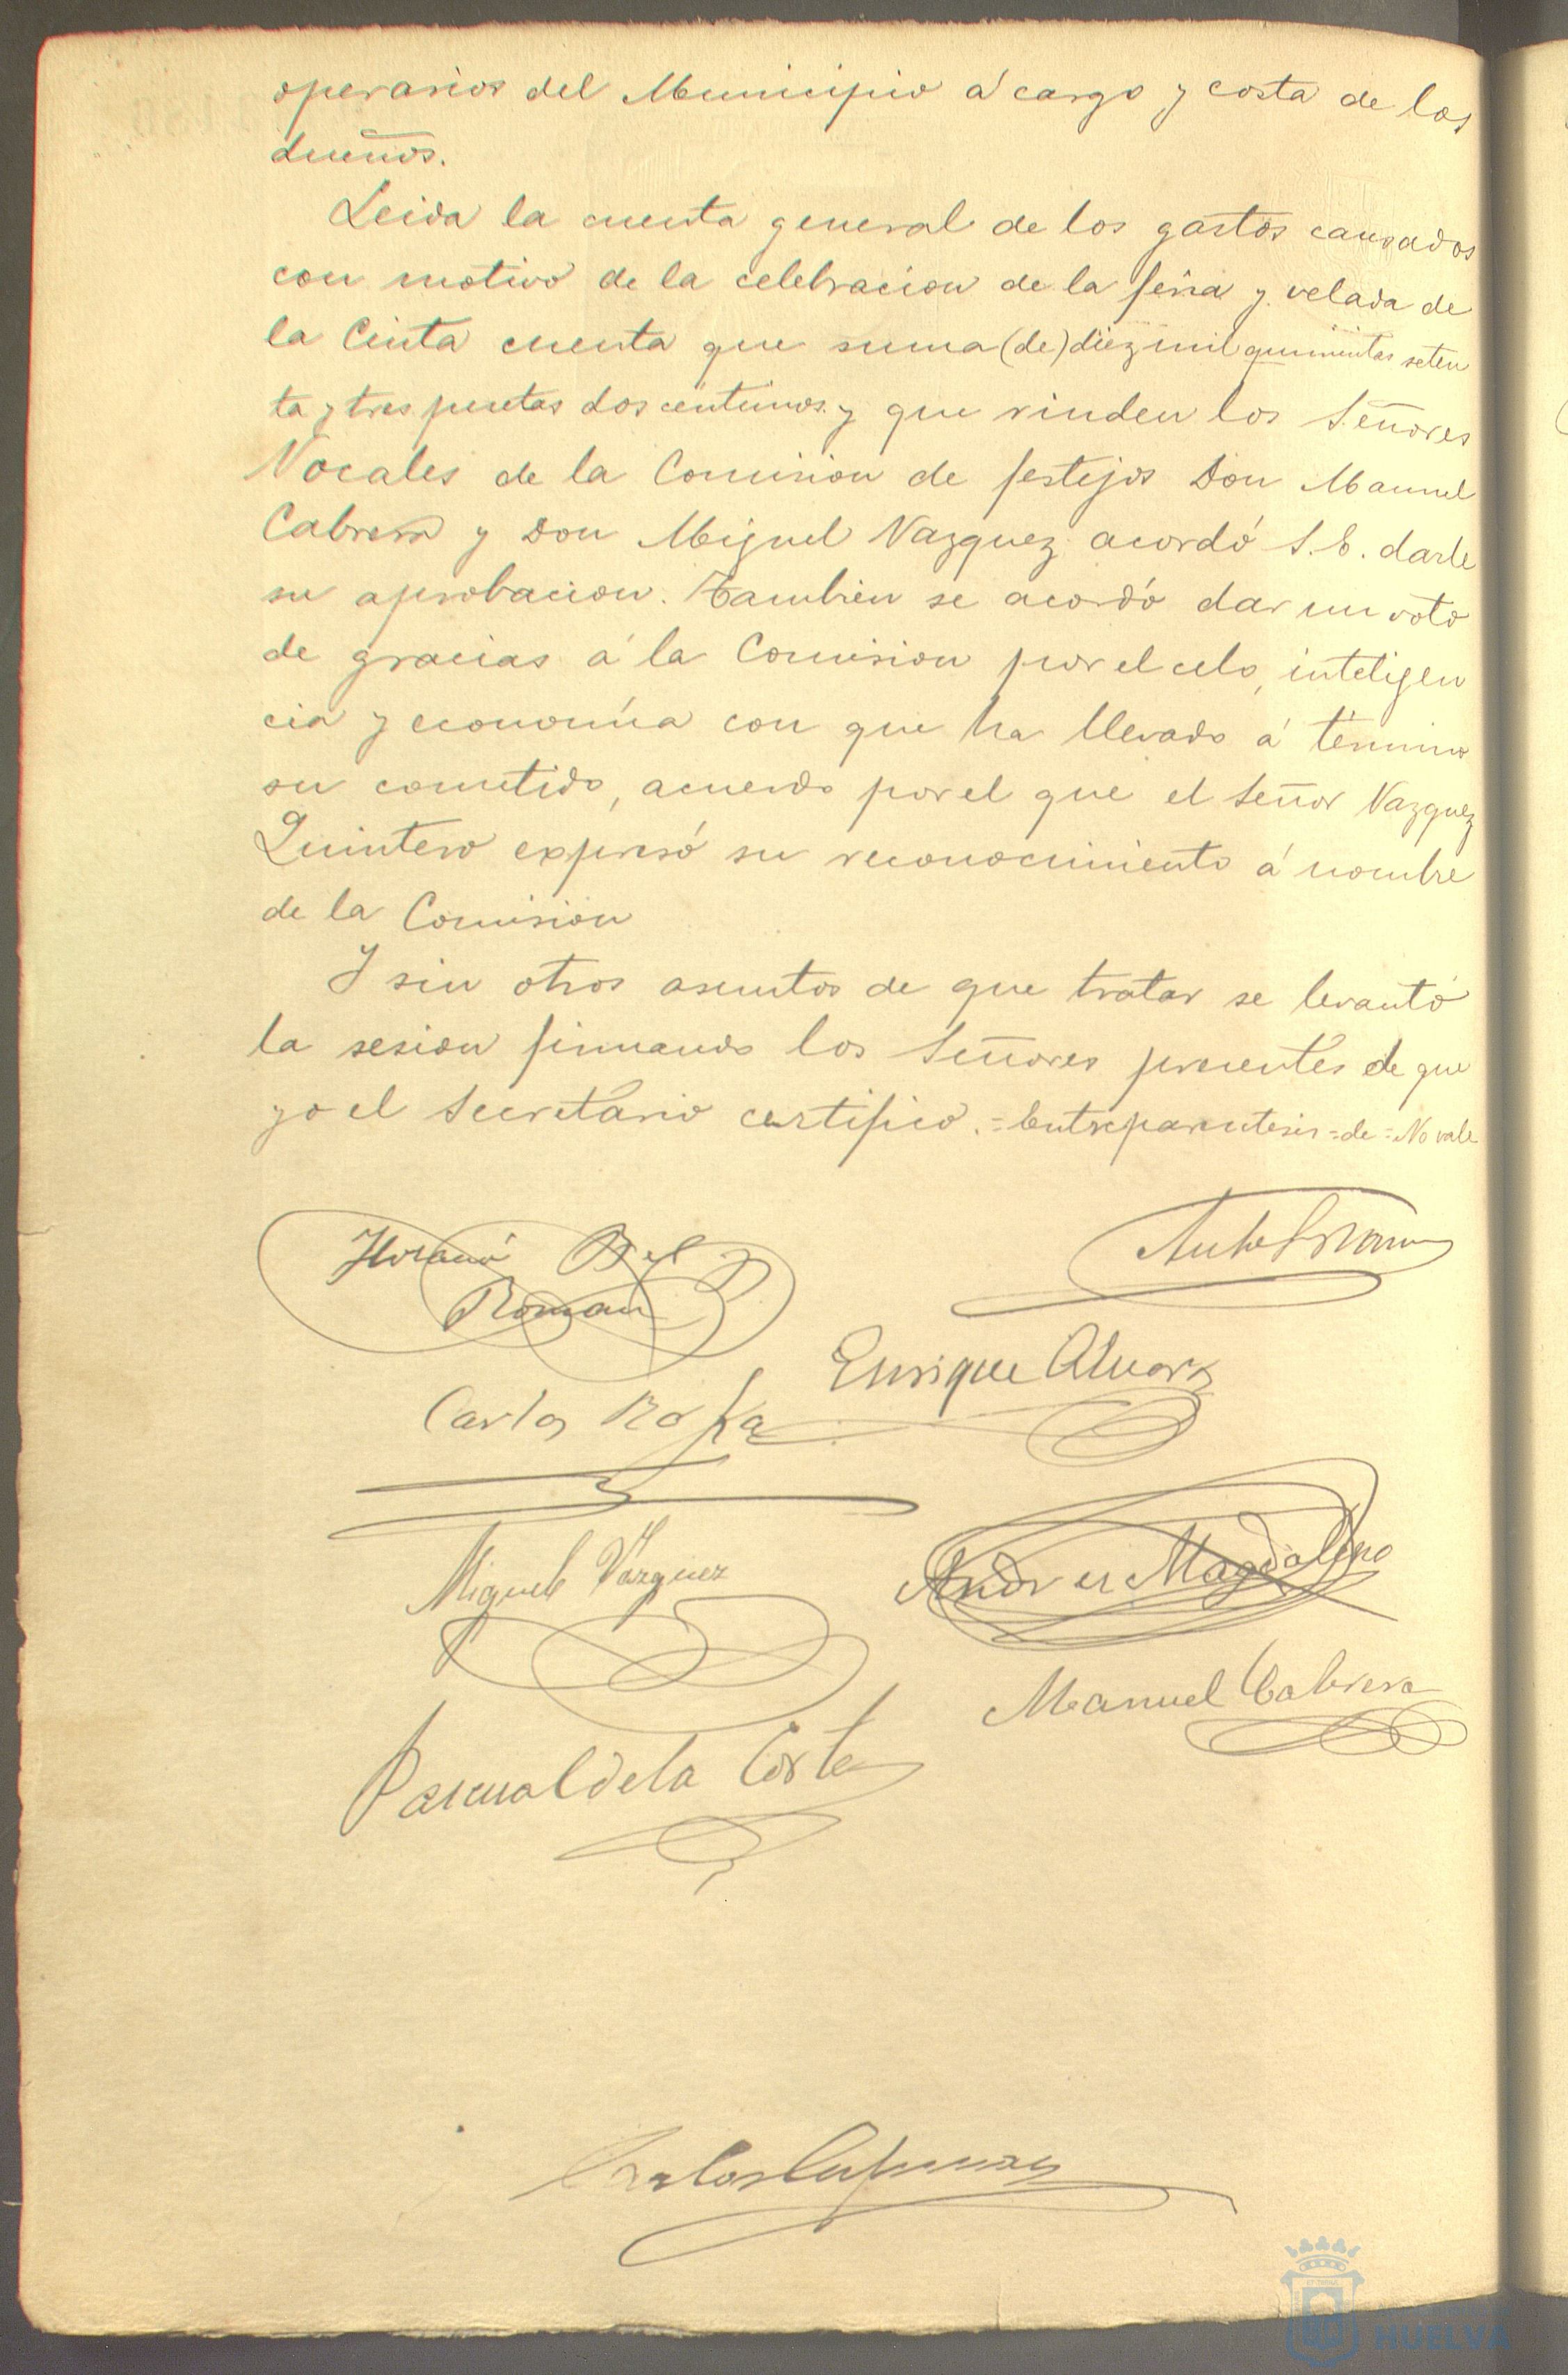 operarios del Municipio á cargo y costa de los
dueños.
Leida la cuenta general de los gastos causados
con motivo de la celebracion de la feria y velada de
la Cinta cuenta que suma (de) diez mil quinientas seten
ta y tres pesetas dos centimos y que rinden los Señores
Vocales de la Comision de festejos Don Manuel
Cabrera y Don Miguel Vazquez acordó S.E. darle
su aprobacion. Tambien se acordó dar un voto
de gracias á la Comision por el celo, inteligen
cia y economía con que ha llevado á término
su cometido, acuerdo por el que el Señor Vazquez
Quintero expresó su reconocimiento á nombre
de la Comision
Y sin otros asuntos de que tratar se levantó
la sesion firmando los Señores presentes de que
yo el Secretario certifico.=Entreparentesis=de=No vale
Bel
Roman
Enrique Alvarez
Carlos
Miguel Vazquez
Andres Magdaleno
Manuel Cabrera
Pascual de la Corte
Carlos
HUELVA